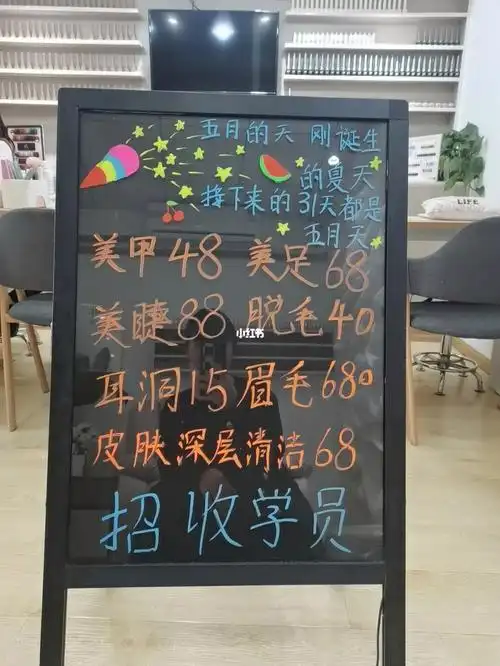 五月的天 刚诞生
的夏天
接下来的31天都是
五月天
美甲48 美足68
美睫88 脱毛40
小红书
耳洞15 眉毛680
皮肤深层清洁68
招收学员
LIFE